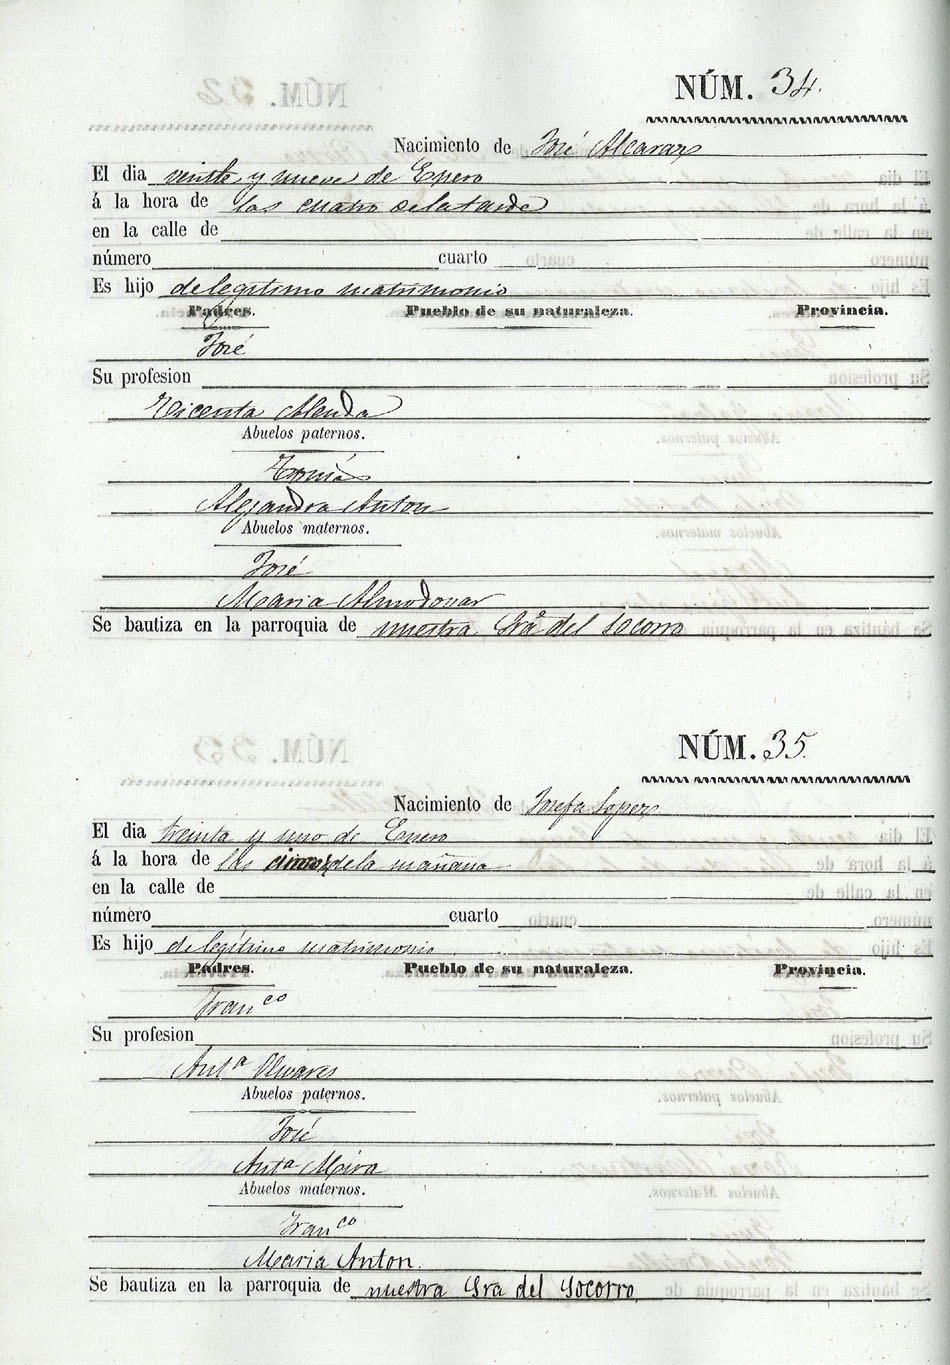 NÚM. 34.
Nacimiento de José Alcaraz
El dia veinte y nueve de Enero
á la hora de las cuatro dela tarde
en la calle de
número cuarto
Es hijo de legítimo matrimonio
Padres. Pueblo de su naturaleza. Provincia.
José
Su profesion
Vicenta Alenda
Abuelos paternos.
Tomás
Alejandra Anton
Abuelos maternos.
José
Maria Almodovar
Se bautiza en la parroquia de nuestra Srª del Socorro
NÚM. 35.
Nacimiento de Josefa Lopez
El dia treinta y uno de Enero
á la hora de las cinco dela mañana
en la calle de
número cuarto
Es hijo de legítimo matrimonio
Padres. Pueblo de su naturaleza. Provincia.
Franco
Su profesion
Antª Olivares
Abuelos paternos.
José
Antª Mira
Abuelos maternos.
Franco
Maria Anton.
Se bautiza en la parroquia de nuestra Sra del Socorro